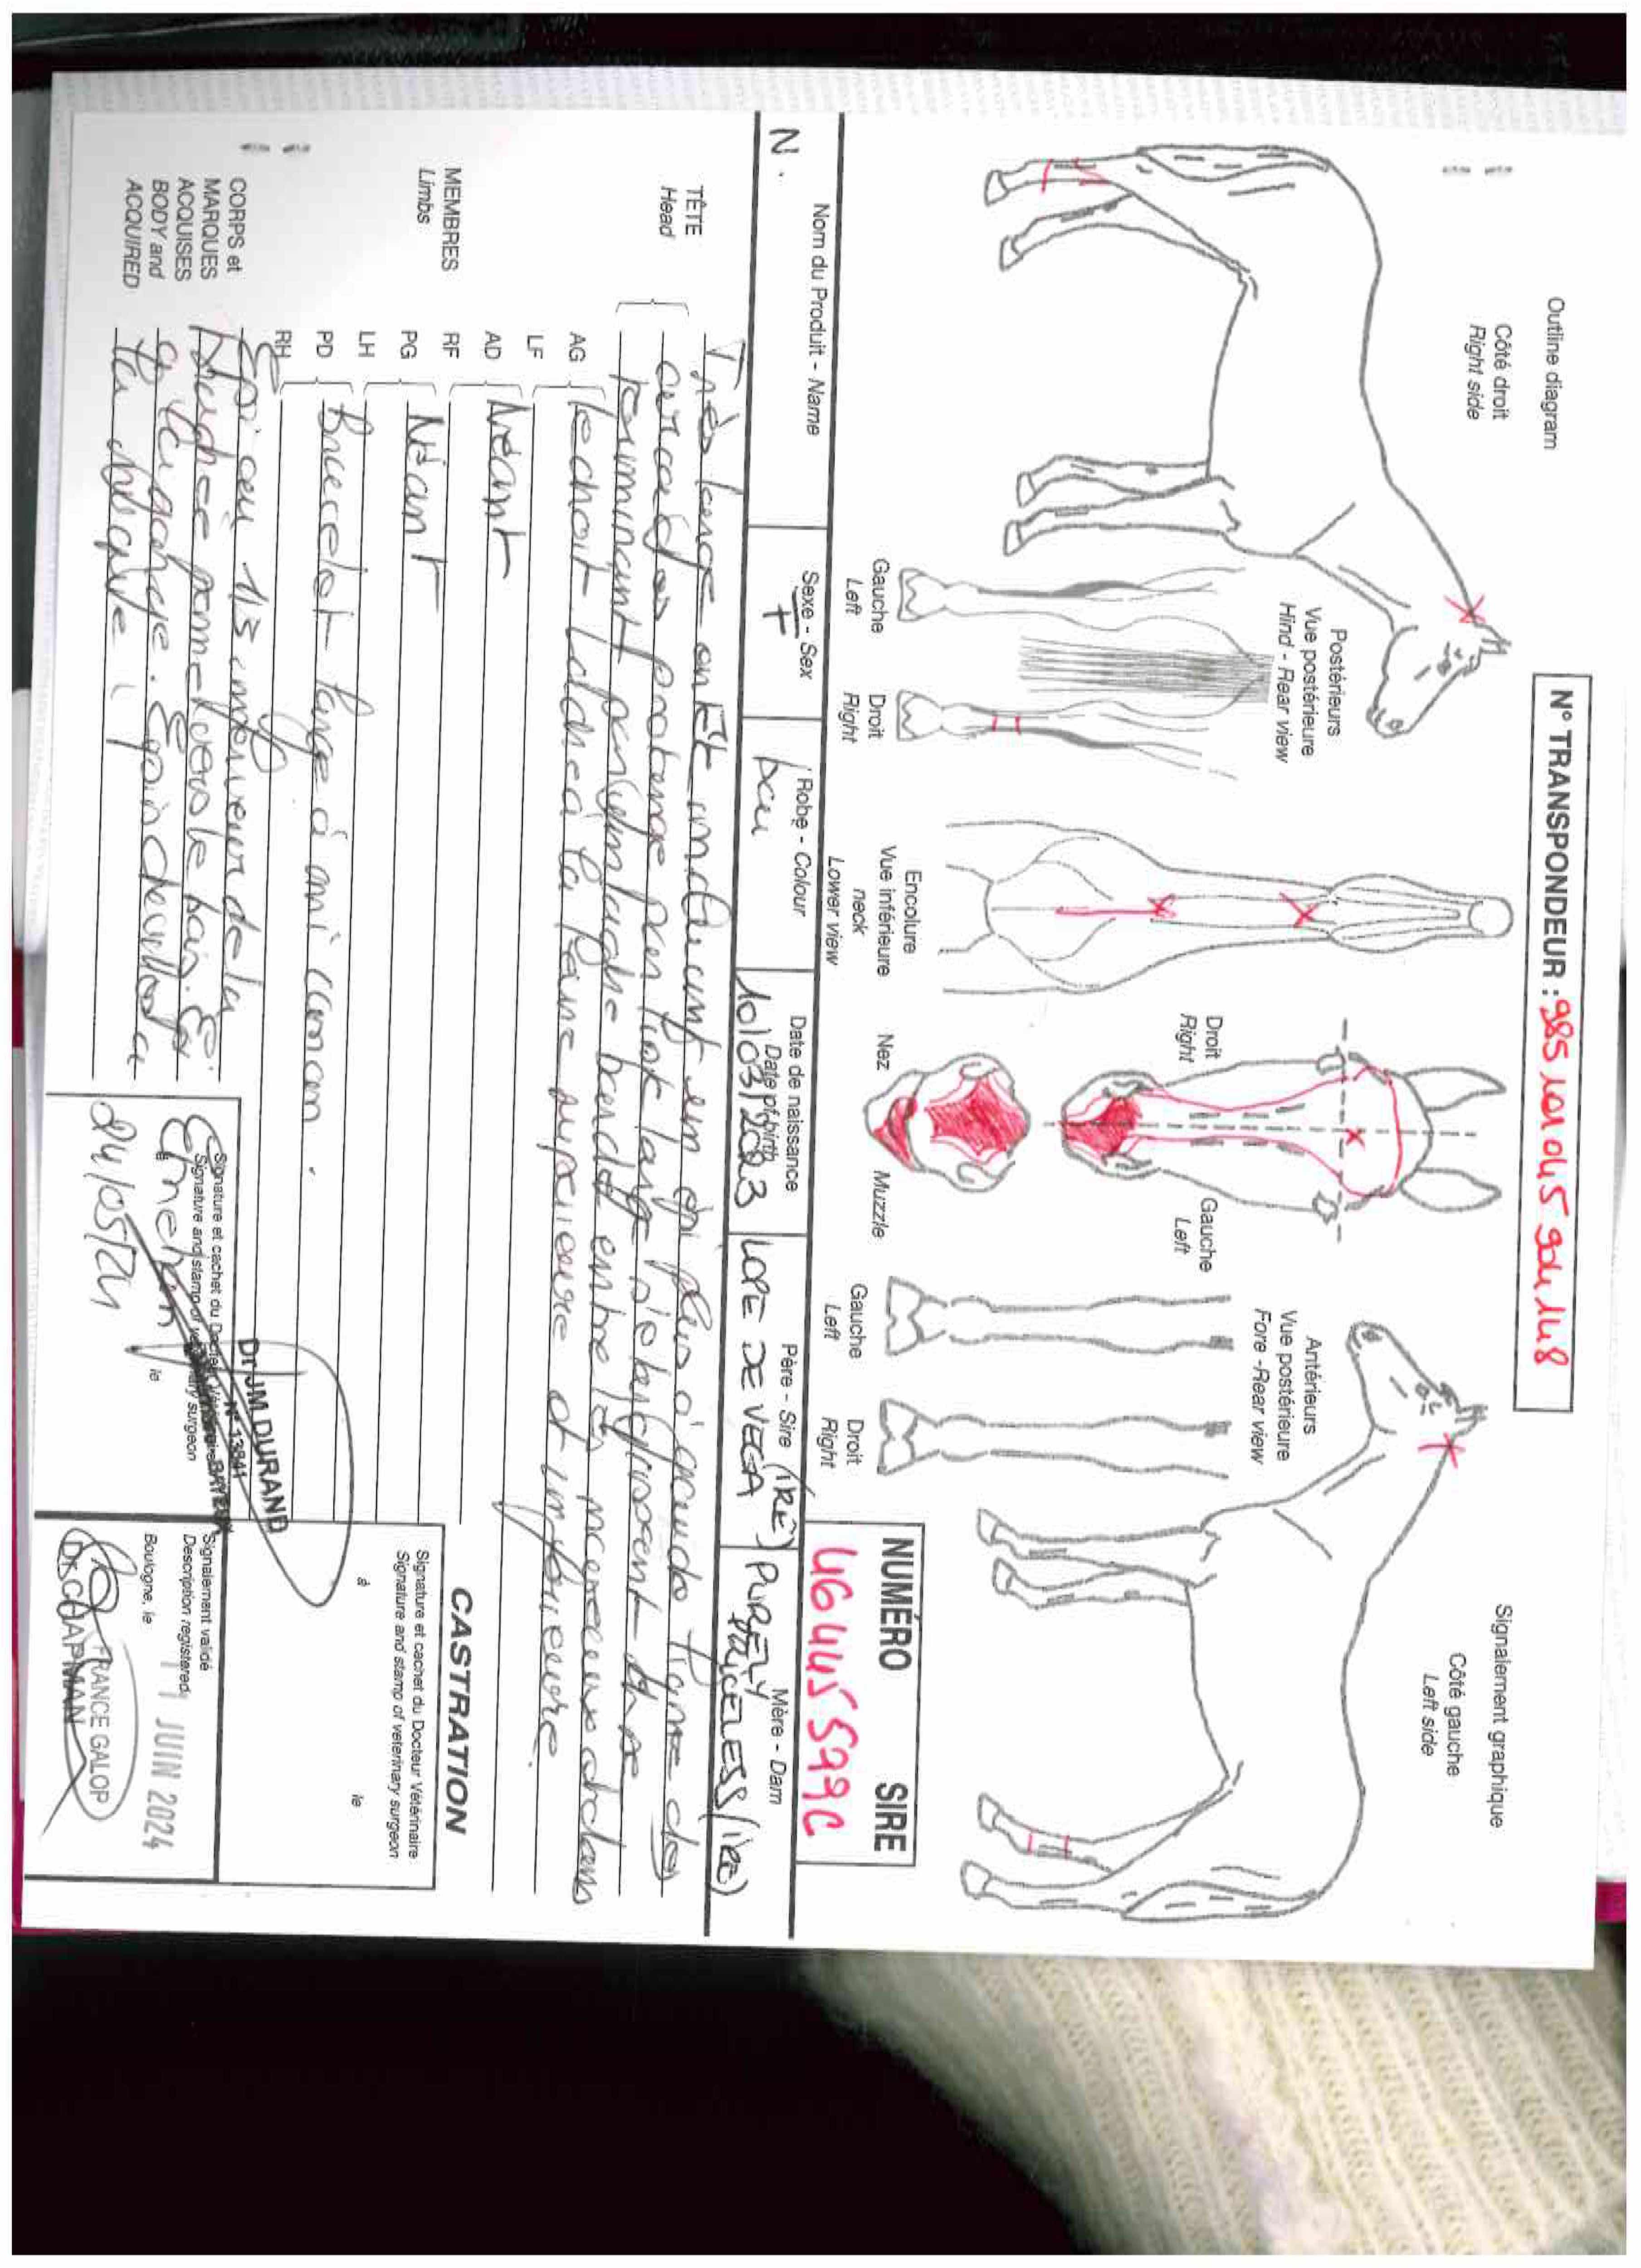 Outline diagram
N° TRANSPONDEUR : 985 101 045 904 148
Signalement graphique
Côté droit
Right side
Côté gauche
Left side
Postérieurs
Vue postérieure
Hind - Rear view
Droit
Right
Gauche
Left
Antérieurs
Vue postérieure
Fore - Rear view
Gauche
Left
Droit
Right
Encolure
Vue inférieure
neck
Lower view
Nez
Muzzle
Gauche
Left
Droit
Right
NUMÉRO SIRE
46 445 599C
Nom du Produit - Name
N.
Sexe - Sex
F
Robe - Colour
bai
Date de naissance
Date of birth
10/03/2023
Père - Sire
LOPE DE VEGA (IRE)
Mère - Dam
PURELY
PRICELESS (IRE)
TÊTE
Head
Très large en tête incluant un épi plus à gauche ligne des
arcades prolongé par liste large s'élargissant
terminant par mélangé bordé entre les naseaux dedans
AG ladre à la lèvre supérieure et inférieure.
MEMBRES
Limbs
LF
AD Néant
RF
PG Néant
LH
PD Bracelet large à mi canon.
RH
CORPS et
MARQUES
ACQUISES
BODY and
ACQUIRED
Epi au 1/3 inférieur de la
trachée prolongé vers le bas. Epi
à la gorge. Epi
la nuque.
Signature et cachet du Docteur Vétérinaire
Signature and stamp of veterinary surgeon
le
24/05/24
Dr JM DURAND
N° 13841
BAYEUX
CASTRATION
Signature et cachet du Docteur Vétérinaire
Signature and stamp of veterinary surgeon
à
le
Signalement validé
Description registered
Boulogne, le
11 JUIN 2024
FRANCE GALOP
Dr. CHAPMAN